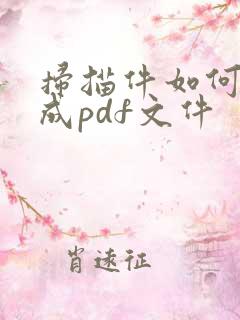 扫描件如何
成pdf文件
肖遠征